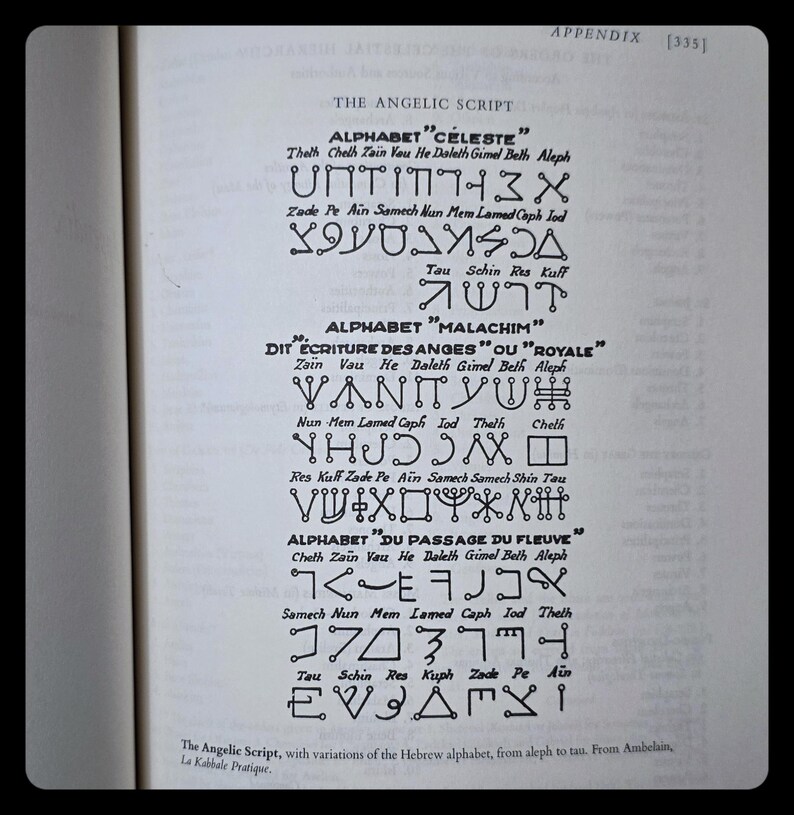 APPENDIX [335]
THE ANGELIC SCRIPT
ALPHABET "CÉLESTE"
Theth Cheth Zaïn Vau He Daleth Gimel Beth Aleph
Zade Pe Aïn Samech Nun Mem Lamed Caph Iod
Tau Schin Res Kuff
ALPHABET "MALACHIM"
DIT "ÉCRITURE DES ANGES" OU "ROYALE"
Zaïn Vau He Daleth Gimel Beth Aleph
Nun Mem Lamed Caph Iod Theth Cheth
Res Kuff Zade Pe Aïn Samech Samech Shin Tau
ALPHABET "DU PASSAGE DU FLEUVE"
Cheth Zaïn Vau He Daleth Gimel Beth Aleph
Samech Nun Mem Lamed Caph Iod Theth
Tau Schin Res Kuph Zade Pe Aïn
The Angelic Script, with variations of the Hebrew alphabet, from aleph to tau. From Ambelain,
La Kabbale Pratique.